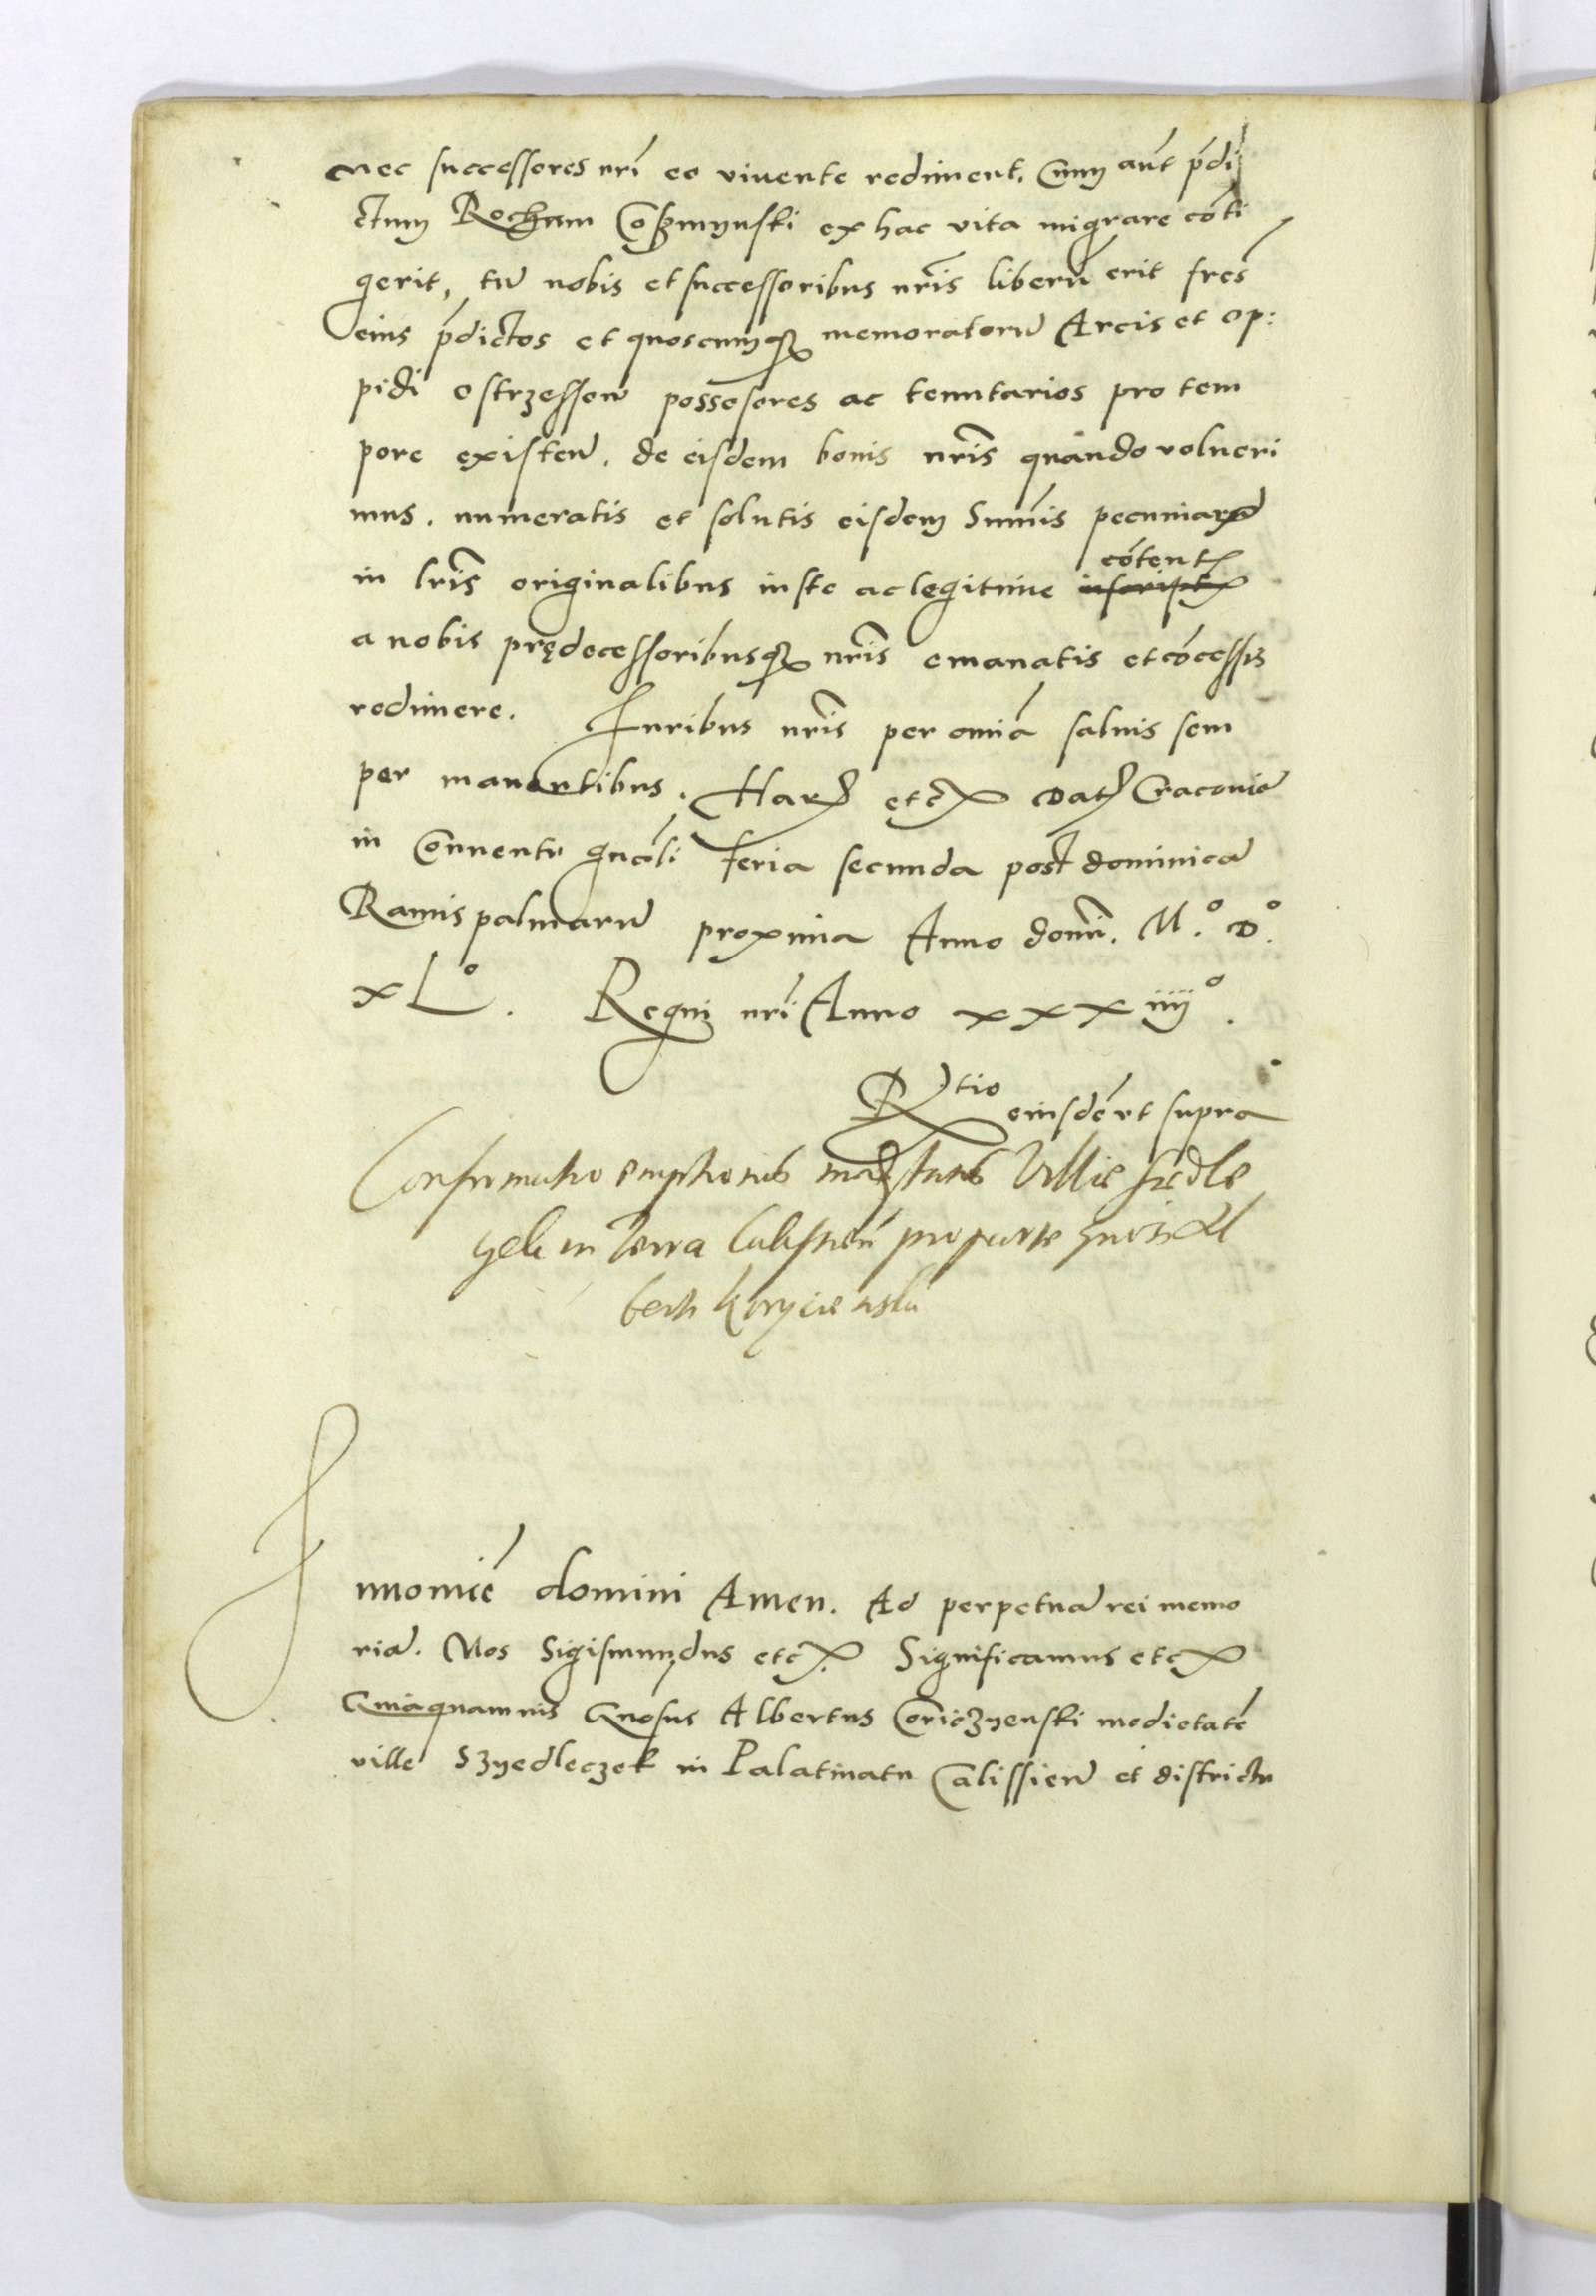 nec successores nrĩ eo viuente rediment. Cum aũt p̃di
ctum Rochum Coszmynski ex hac vita migrare cõti
gerit, tũ nobis et successoribus nrĩs liberũ erit frẽs
eius p̃dictos et quoscumqꝫ memoratorũ Arcis et op:
pidi ostrzessoñ possesores ac tenutarios pro tem
pore existeñ. de eisdem bonis nrĩs quando volueri
mus. numeratis et solutis eisdem Summis pecuniarꝫ
in lrĩs originalibus iuste ac legitime inscriptꝭ cõtentꝭ
a nobis prędecessoribusqꝫ nrĩs emanatis et cõcessis
redimere. Iuribus nrĩs per omĩa saluis sem
per manentibus. Harꝫ etcꝭ Datꝫ Cracouie
in Conuentu gnãli feria secunda post dominicã
Ramispalmarũ proxima Anno domĩ. M.º D.º
XLº. Regni nrĩ Anno xxxiiijº.
Rtio eiusdẽ vt supra
Confirmatio emptionis medietatis Ville siedle
yek in Terra Calissieñ pro parte gnosi Al
berti koryczienski
In nomĩe domini Amen. Ad perpetuã rei memo
riã. Nos Sigismundus etcꝭ. Significamus etcꝭ
Quia quamuis Gnosus Albertus Coriczyenski medietatẽ
ville Szyedleczek in Palatinatu Calissieñ et districtu